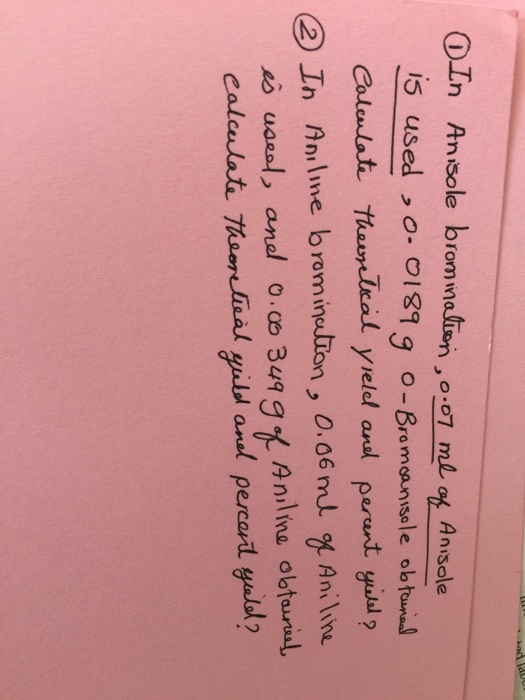 ① In Anisole bromination, 0.07 ml of Anisole
is used, 0.0189 g o-Bromoanisole obtained
Calculate theoretical yield and percent yield?
② In Aniline bromination, 0.06 ml of Aniline
is used, and 0.00349 g of Aniline obtained
calculate theoretical yield and percent yield?